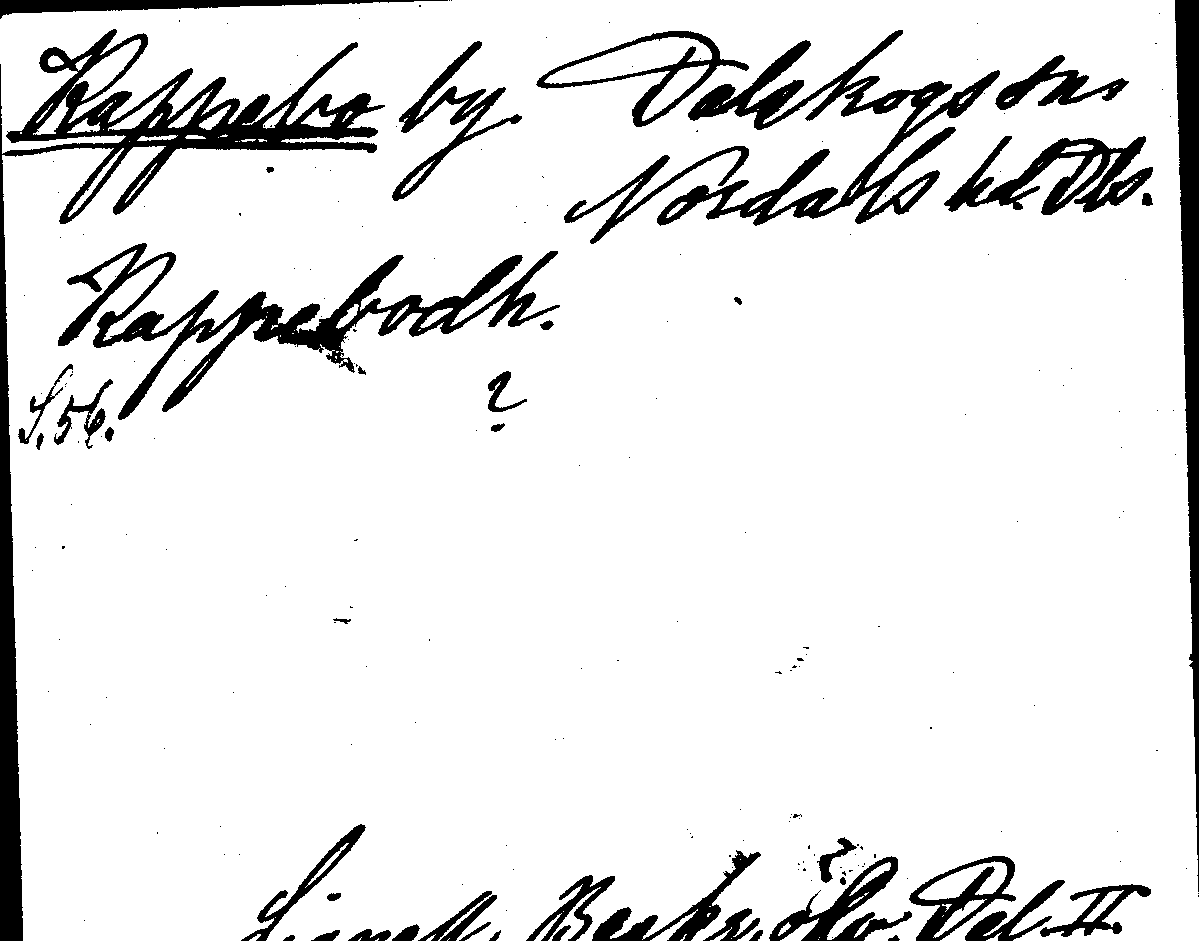 Kappebo by. Dalskogs sn.
Nordals hd. Dls.
Kappebodh.
S. 56. ?
Lignell, Beskr. öfv. Dal. II.